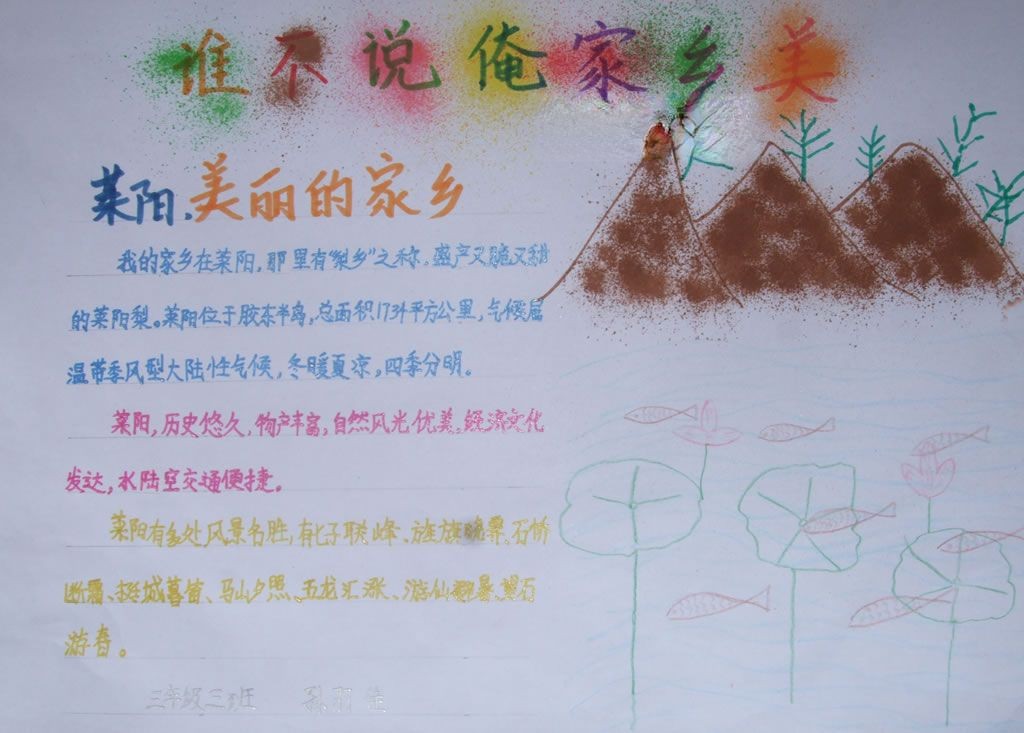 谁不说俺家乡美
莱阳.美丽的家乡
我的家乡在莱阳,那里有“梨乡”之称。盛产又脆又
的莱阳梨。莱阳位于胶东半岛,总面积1734平方公里,气候属
温带季风型大陆性气候,冬暖夏凉,四季分明。
莱阳,历史悠久,物产丰富,自然风光优美,经济文化
发达,水陆空交通便捷。
莱阳有多处风景名胜,有七子联峰、旌旗晚翠、石桥
断霭、挺城暮笛、马山夕照、五龙汇涨、游仙
游春。
三年级三班